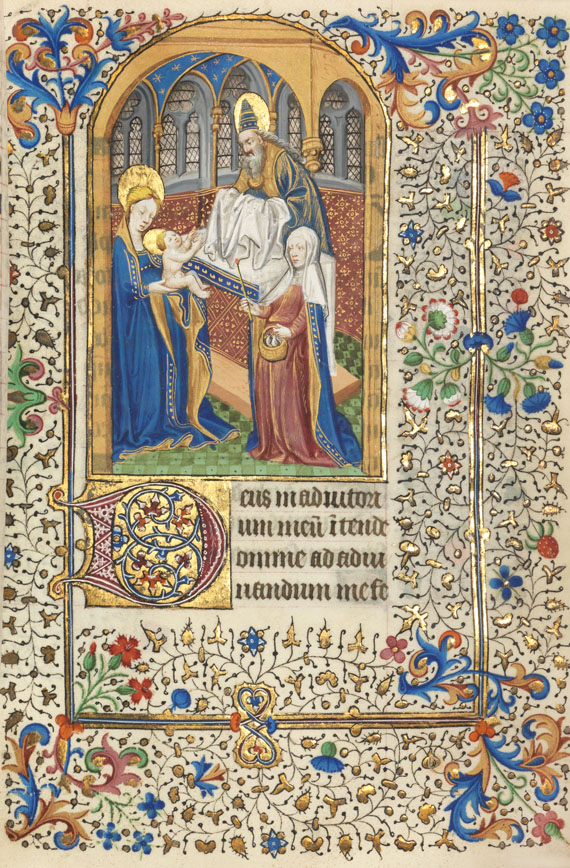 Deus in adiutori
um meũ ĩtende
domine ad adiu
uandum me fe